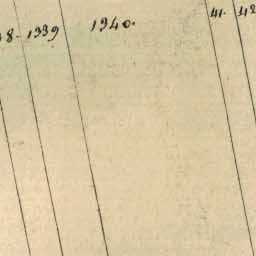 8-1939 1940. 41. 42